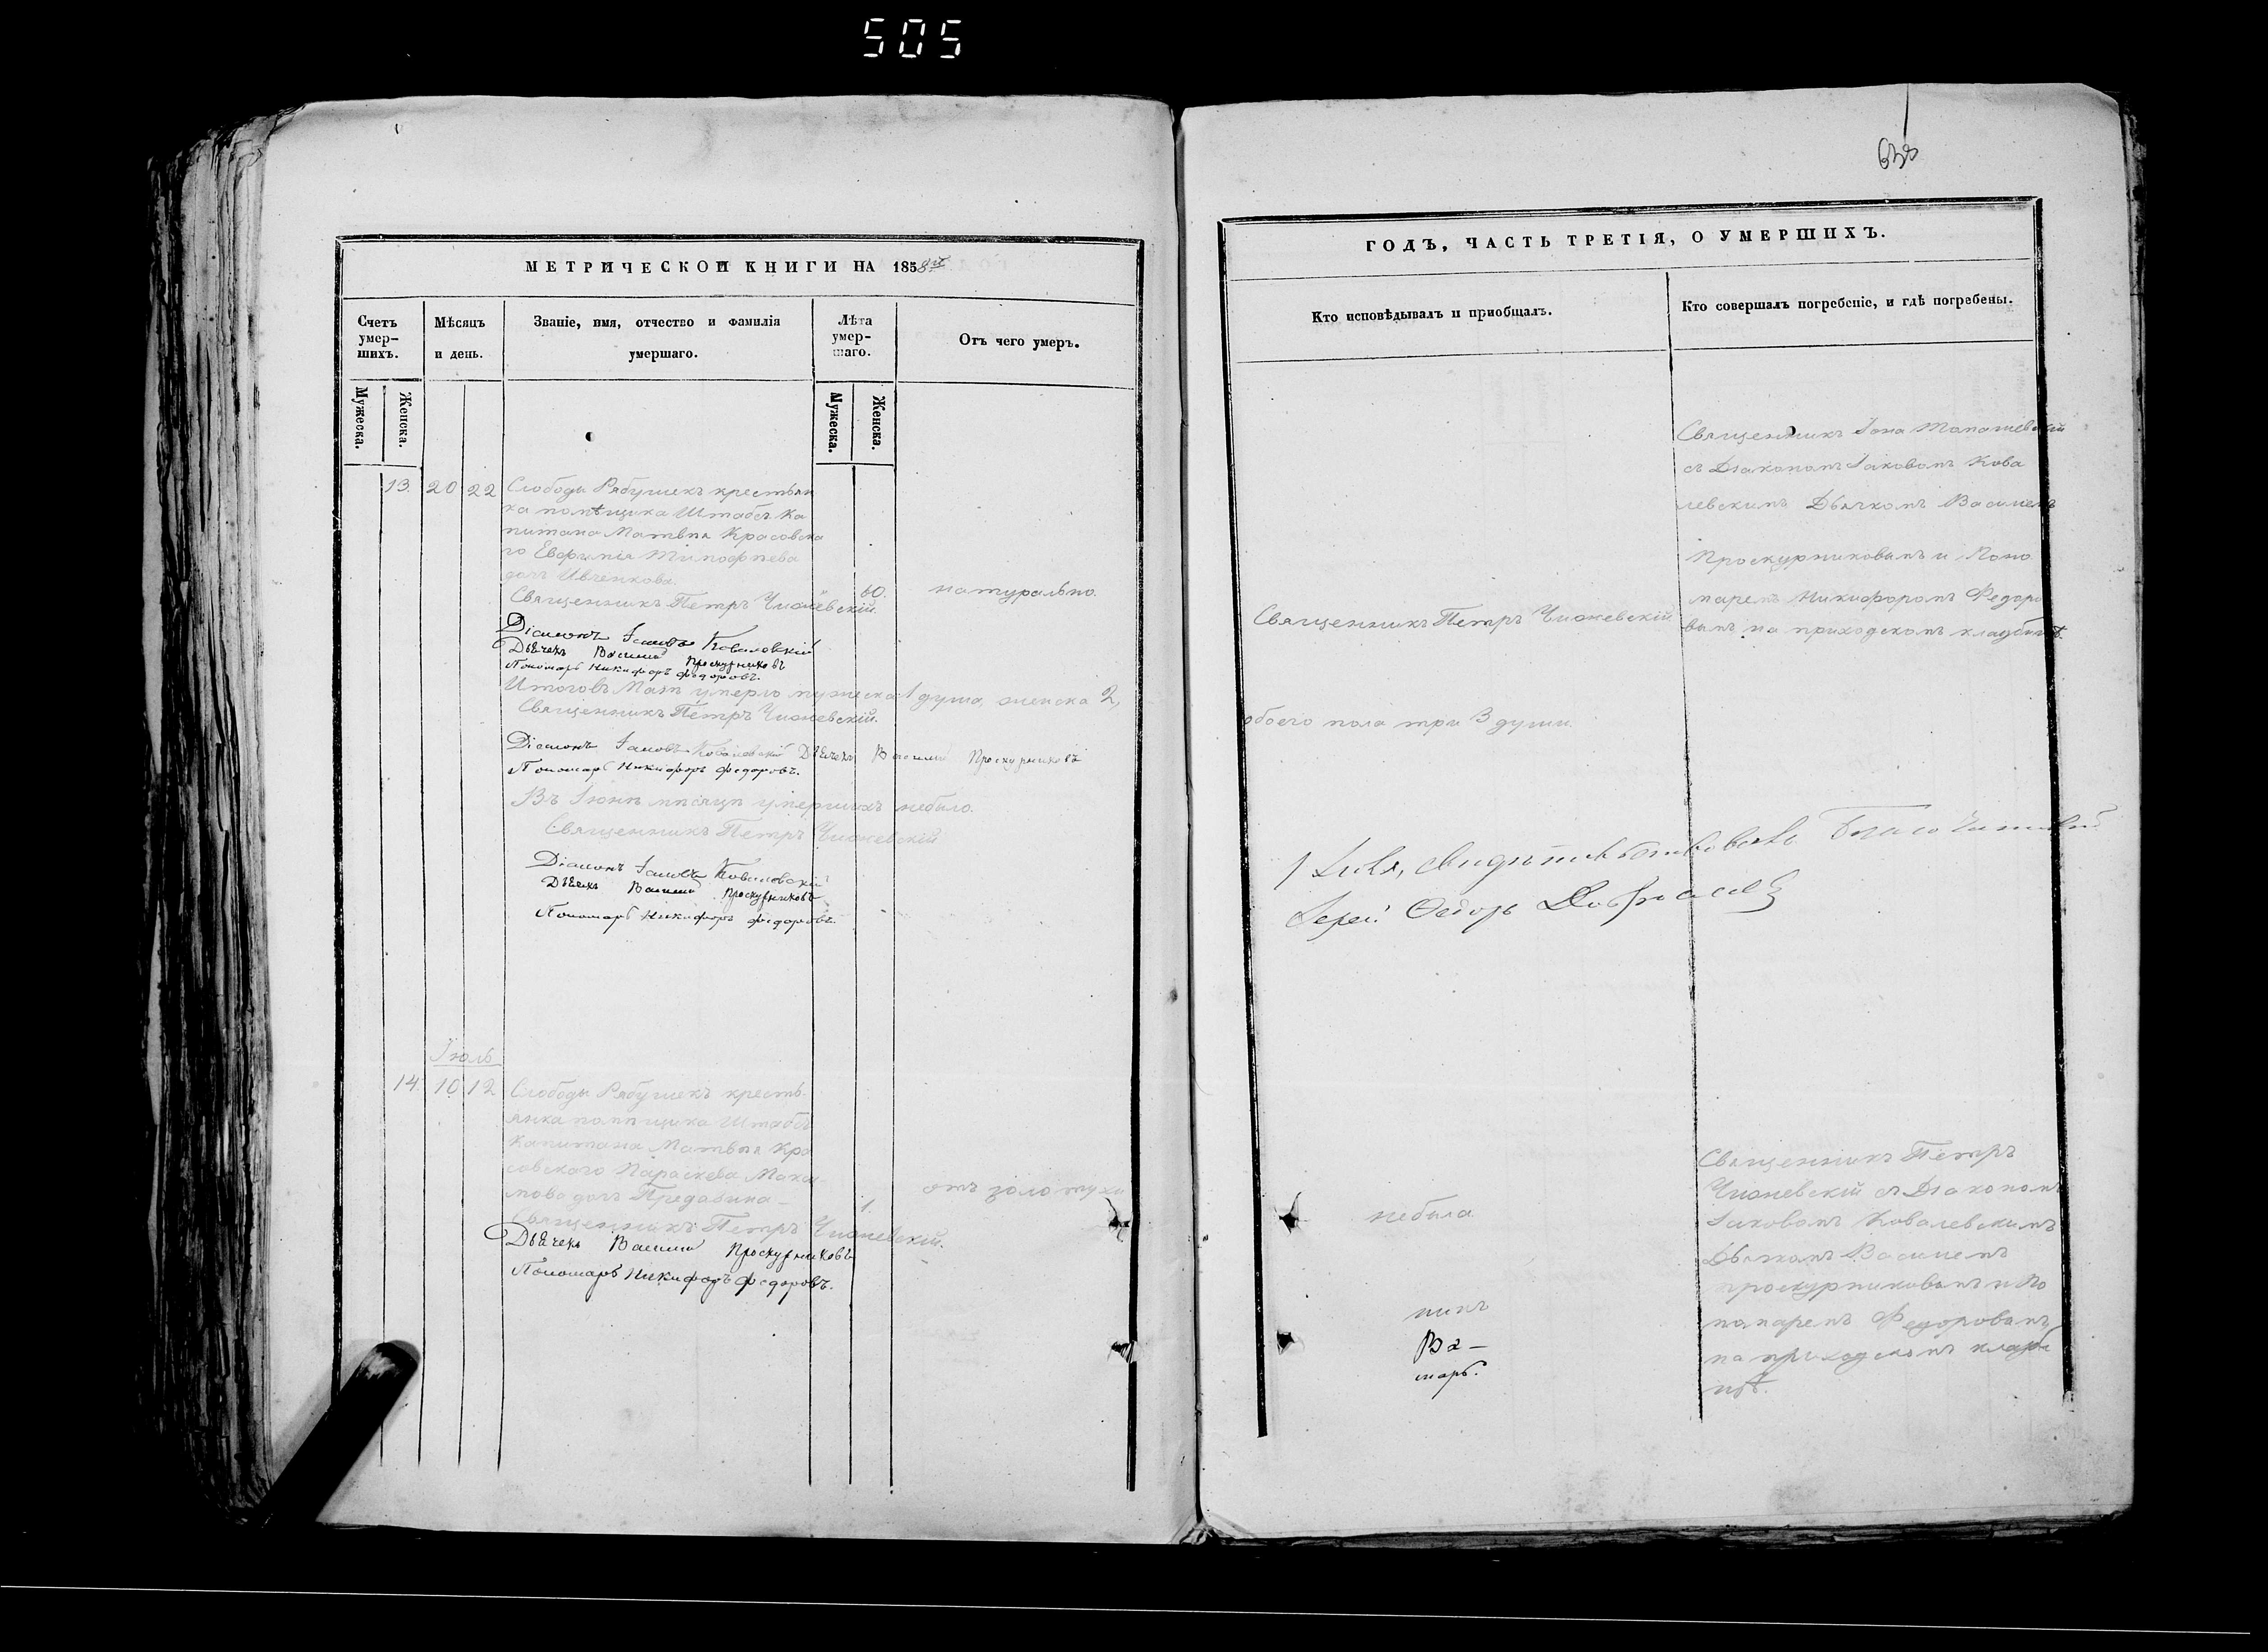 505
638
МЕТРИЧЕСКОЙ КНИГИ НА 1858й
Счетъ умер-
шихъ.
Мѣсяцъ
и день.
Званіе, имя, отчество и фамилія
умершаго.
Лѣта
умер-
шаго.
Отъ чего умеръ.
Мужеска.
Женска.
Мужеска.
Женска.
13. 20 22 Слободы Рябушекъ крестьян
ка помѣщика Штабсъ Ка
питана Матвѣя Красовска
го Евфимія Тимофѣева
дочь Ивченкова.
60. натурально.
Священникъ Петръ Чижевскій.
Діаконъ Іаковъ Ковалевскій
Дьячекъ Василій Проскурниковъ
Пономарь Никифоръ Федоровъ.
Итого въ Маѣ умерло мужеска 1 душа, женска 2,
Священникъ Петръ Чижевскій.
Діаконъ Іаковъ Ковалевскій Дьячекъ Василій Проскурниковъ
Пономарь Никифоръ Федоровъ.
Въ Іюнѣ мѣсяцѣ умершихъ небыло.
Священникъ Петръ Чижевскій
Діаконъ Іаковъ Ковалевскій
Дьячекъ Василій Проскурниковъ
Пономарь Никифоръ Федоровъ.
Іюль
14. 10 12 Слободы Рябушекъ кресть
янка помѣщика Штабсъ
Капитана Матвѣя Кра
совскаго Параскева Макси
мова дочь
1. отъ золотухи
Священникъ Петръ Чижевскій.
Дьячекъ Василій Проскурниковъ
Пономарь Никифоръ Федоровъ.
ГОДЪ, ЧАСТЬ ТРЕТІЯ, О УМЕРШИХЪ.
Кто исповѣдывалъ и приобщалъ.
Кто совершалъ погребеніе, и гдѣ погребены.
Священникъ Іона
съ Діакономъ Іаковомъ Кова
левскимъ Дьячкомъ Василіемъ
Проскурниковымъ и Поно
маремъ Никифоромъ Федоро
вымъ на приходскомъ кладбищѣ.
Священникъ Петръ Чижевскій
обоего пола три 3 души
свидѣтельствовалъ Благочинный
Іерей Ѳедоръ
небыла
никъ
Ва-
марь.
Священникъ Петръ
Чижевскій съ Діакономъ
Іаковомъ Ковалевскимъ
Дьячкомъ Василіемъ
Проскурниковымъ и По
номаремъ Федоровымъ
на приходскомъ кладби
щѣ.